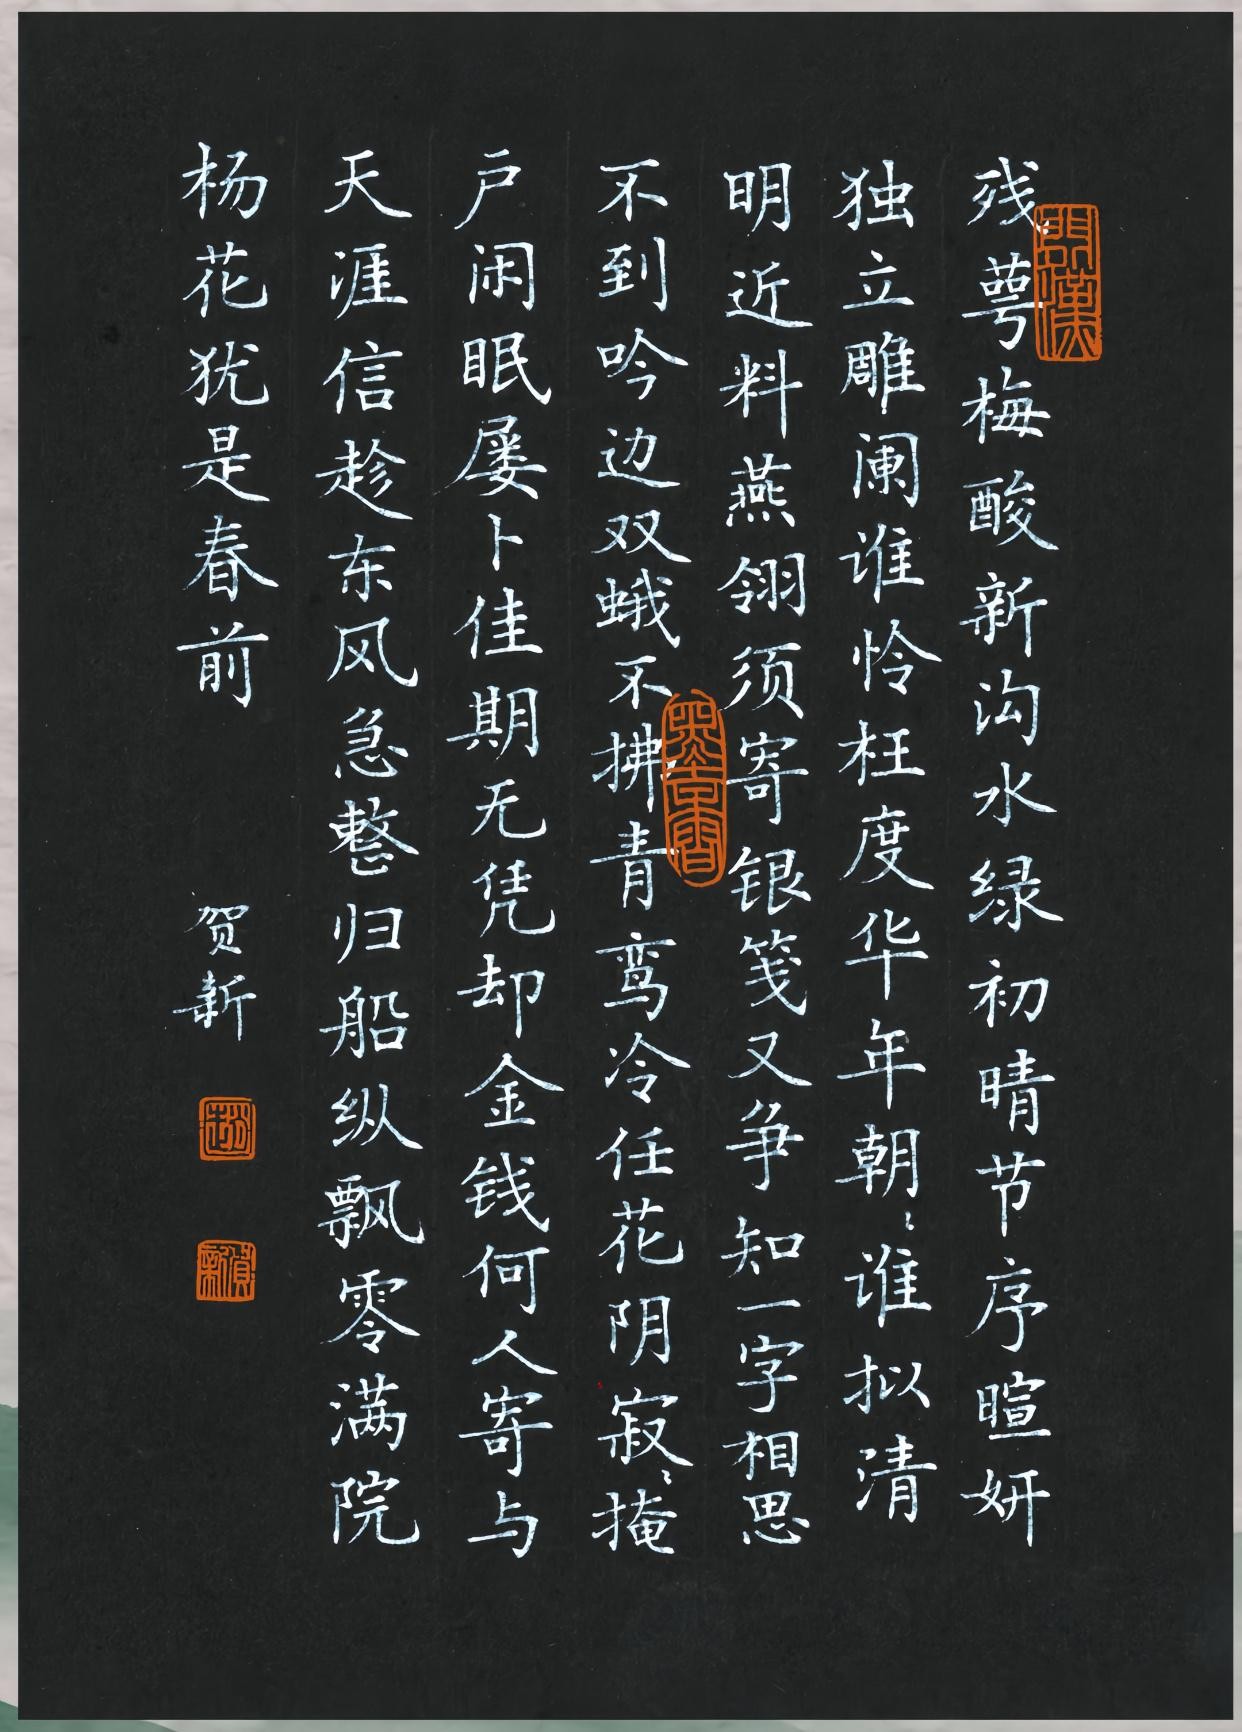 残萼梅酸新沟水绿初晴节序暄妍
独立雕阑谁怜枉度华年朝〻谁拟清
明近料燕翎须寄银笺又争知一字相思
不到吟边双蛾不拂青鸾冷任花阴寂〻掩
户闲眠屡卜佳期无凭却金钱何人寄与
天涯信趁东风急整归船纵飘零满院
杨花犹是春前
贺新